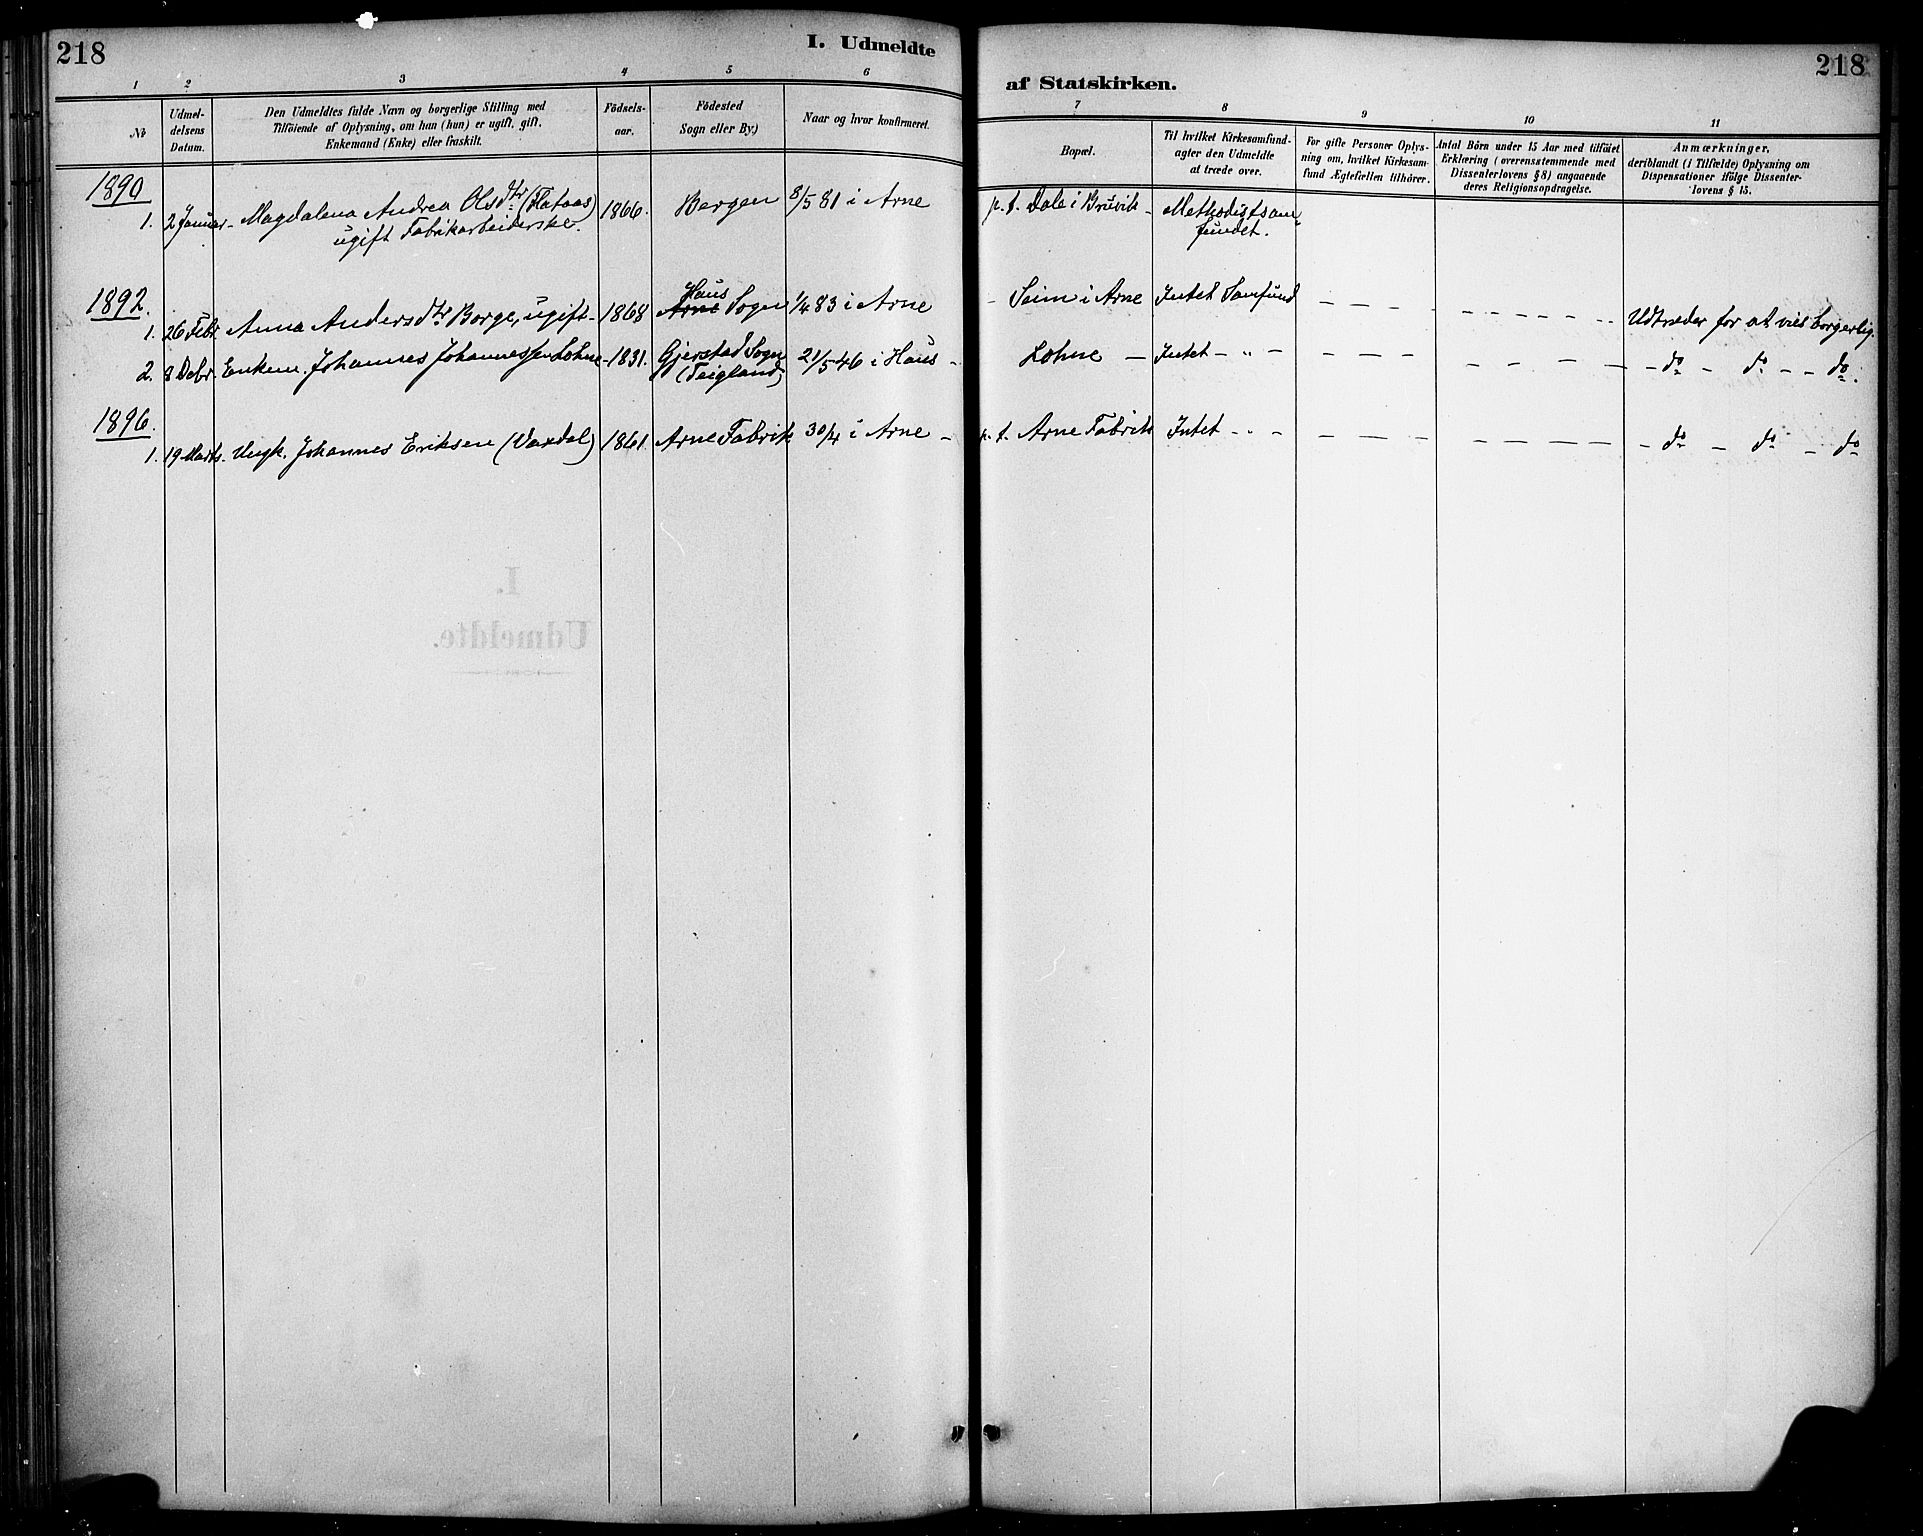 218
I. Udmeldte
af Statskirken.
218
1 2 3 4 5 6 7 8 9 10 11
№
Udmel-
delsens
Datum.
Den Udmeldtes fulde Navn og borgerlige Stilling med
Tilföiende af Oplysning, om han (hun) er ugift, gift,
Enkemand (Enke) eller fraskilt.
Födsels-
aar.
Födested
Sogn eller By.)
Naar og hvor konfirmeret.
Bopæl.
Til hvilket Kirkesamfund-
agter den Udmeldte
at træde over.
For gifte Personer Oplys-
ning om, hvilket Kirkesam-
fund Ægtefællen tilhörer.
Antal Börn under 15 Aar med tilföiet
Erklæring (overensstemmende med
Dissenterlovens § 8) angaaende
deres Religionsopdragelse.
Anmærkninger,
deriblandt (i Tilfælde) Oplysning om
Dispensationer ifölge Dissenter-
lovens § 15.
1890
1. 2 Januar - Magdalena Andrea Olsdtr (Flataas) 1866. Bergen 8/5 81 i Arne p. t. Dale i Bruvik - Methodistsam-
ugift Fabrikarbeiderske. fundet.
1892.
Haus
1. 26 Febr. Anna Andersdtr Borge, ugift - 1868 Arne Sogn 1/4 83 i Arne - Seim i Arne Intet Samfund - - - - - - - - - Udtræder for at vies borgerlig.
2. 8 Debr. Enkem. Johannes Johannessen Lohne - 1831. Gjerstad Sogn 21/5 46 i Haus - Lohne - Intet - " - - - - - - - - - - do - do - - do.
(Teigland)
1896.
1. 19 Marts. Ungk. Johannes Eriksen (Vaxdal) 1861. Arne Fabrik 30/4 i Arne - p. t. Arne Fabrik Intet - " - - - - - - - - - - do - do - do
I.
Udmeldte.